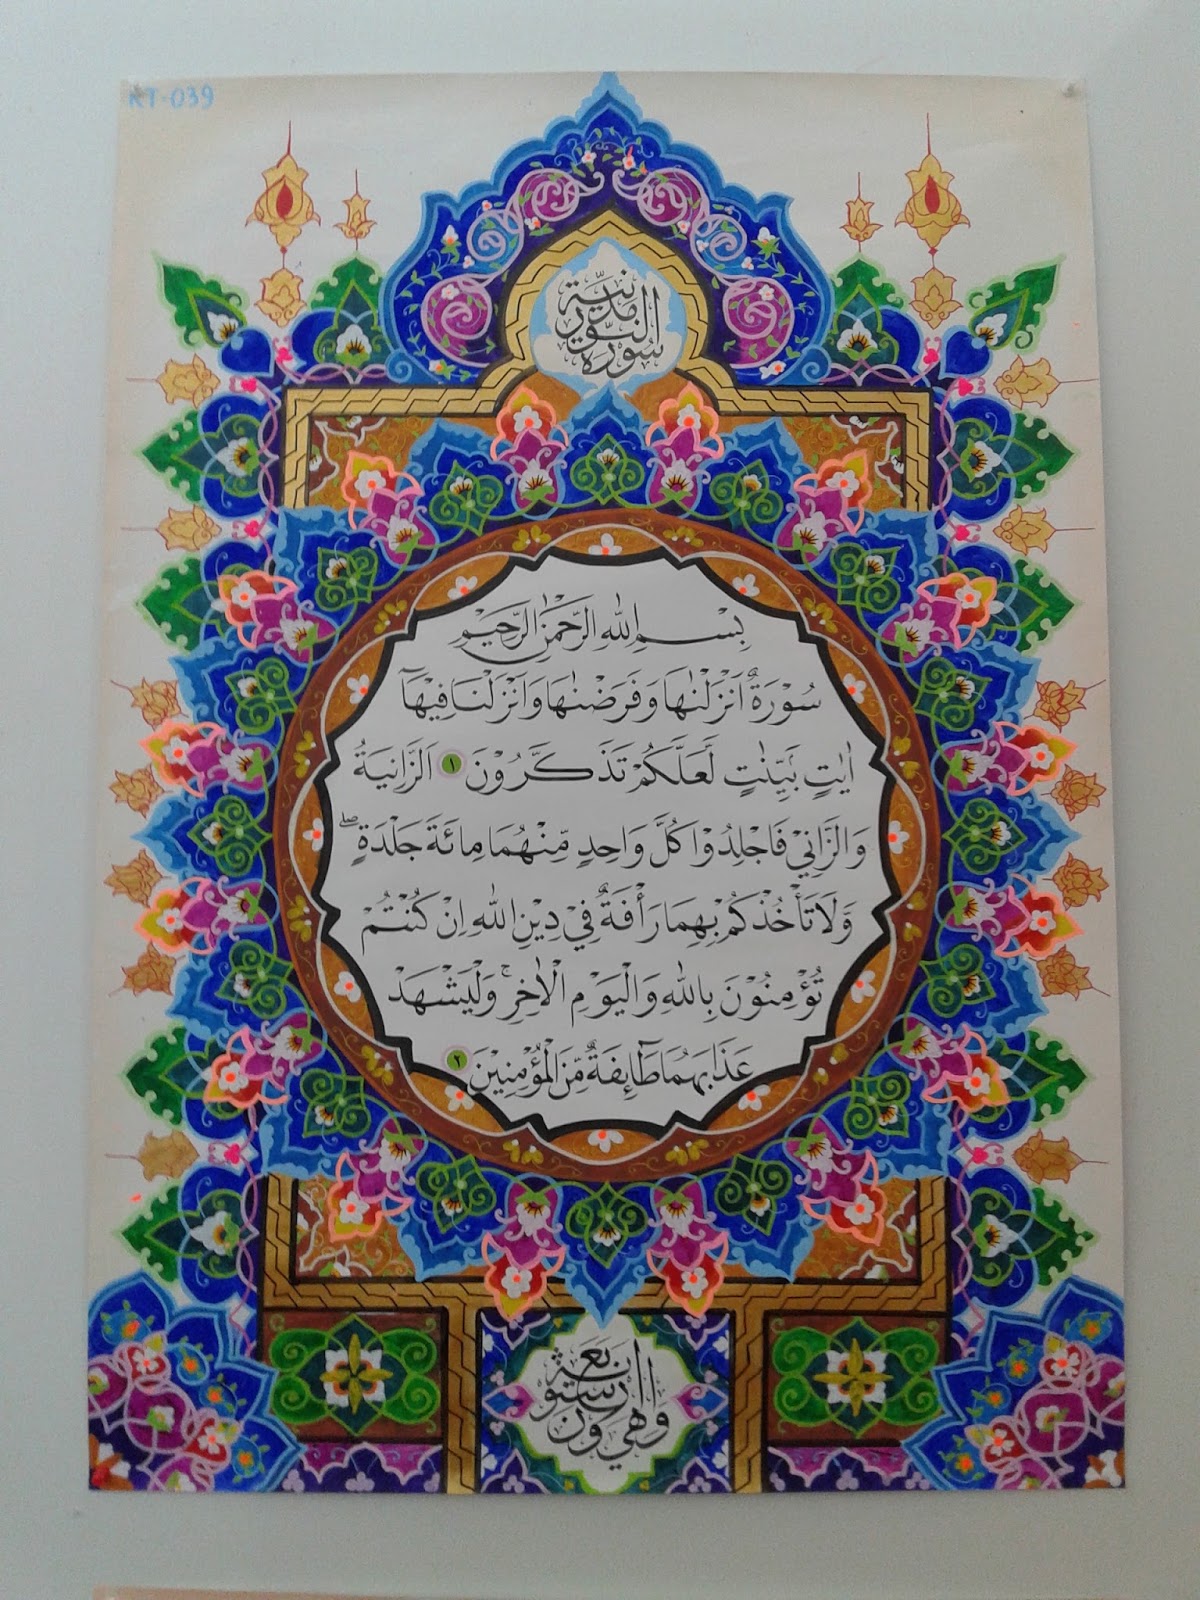 KT-039
سُوْرَةُ النُّوْرِ مَدَنِيَّة
بِسْمِ اللهِ الرَّحْمٰنِ الرَّحِيْمِ
سُوْرَةٌ اَنْزَلْنٰهَا وَفَرَضْنٰهَا وَاَنْزَلْنَا فِيْهَآ
اٰيٰتٍ بَيِّنٰتٍ لَّعَلَّكُمْ تَذَكَّرُوْنَ ١ اَلزَّانِيَةُ
وَالزَّانِيْ فَاجْلِدُوْا كُلَّ وَاحِدٍ مِّنْهُمَا مِائَةَ جَلْدَةٍ ۖ
وَّلَا تَأْخُذْكُمْ بِهِمَا رَأْفَةٌ فِيْ دِيْنِ اللهِ اِنْ كُنْتُمْ
تُؤْمِنُوْنَ بِاللهِ وَالْيَوْمِ الْاٰخِرِۚ وَلْيَشْهَدْ
عَذَابَهُمَا طَآئِفَةٌ مِّنَ الْمُؤْمِنِيْنَ ٢
وَهِيَ